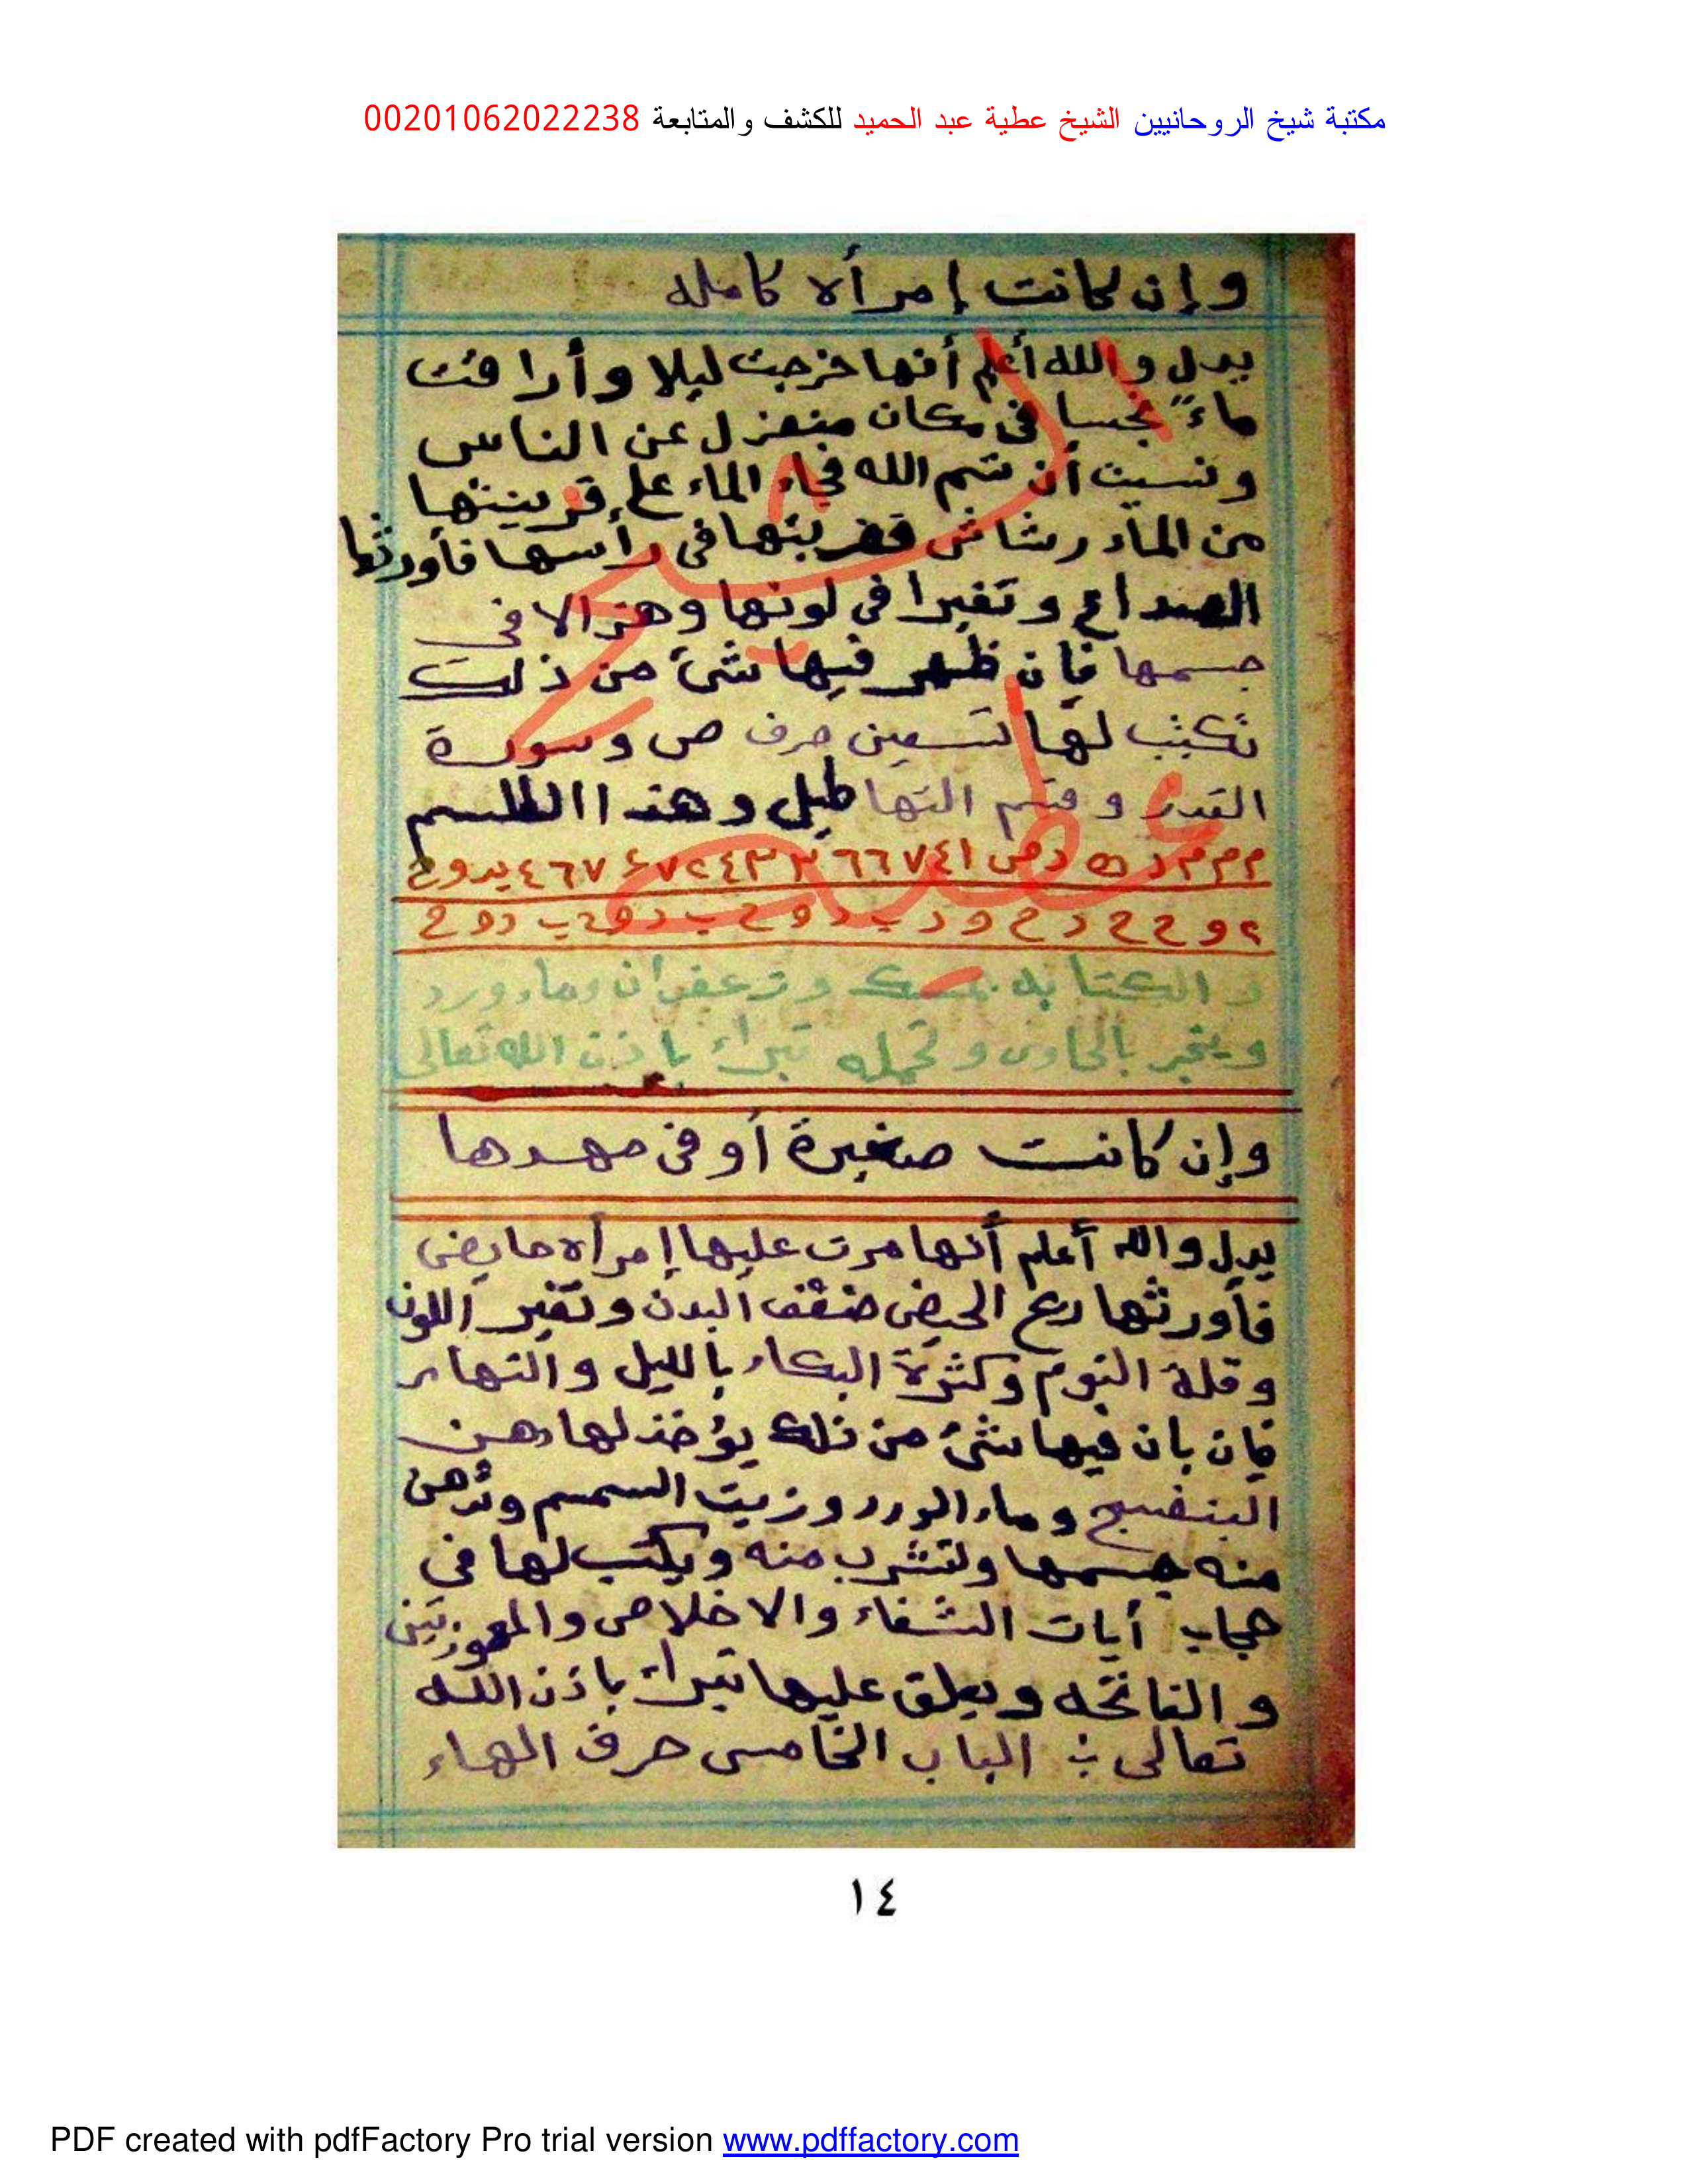 مكتبة شيخ الروحانيين الشيخ عطية عبد الحميد للكشف والمتابعة 00201062022238
وإن كانت إمرأه كامله
يدل والله أعلم أنها خرجت ليلا وأراقت
ماءً نجسا فى مكان منعزل عن الناس
ونسيت أن تسم الله فجاء الماء على قرينتها
من الماء رشاش فضربتها فى رأسها فأورثها
الصداع وتغيرا فى لونها وهزالا فى
جسمها فإن ظهر فيها شئ من ذلك
تكتب لها تسعين حرف ص وسورة
القدر وقسم التهاطيل وهذا الطلسم
والكتابه بمسك وزعفران وماء ورد
ويبخر بالجاوى وتحمله تبراء باذن الله تعالى
وإن كانت صغيرة أو فى مهدها
يدل والله أعلم أنها مرت عليها إمرأه حايض
فأورثها ريح الحيض ضعف البدن وتغير اللون
وقلة النوم وكثرة البكاء بالليل والنهار
فإن بان فيها شئ من ذلك يؤخذ لها دهن
البنفسج وماء الورد وزيت السمسم وتدهن
منه جسمها ولتشرب منه ويكتب لها فى
حجاب أيات الشفاء والاخلاص والمعوزتين
والفاتحه ويعلق عليها تبراء باذن الله
تعالى الباب الخامس حرف الهاء
الشيخ
عطيه
١٤
PDF created with pdfFactory Pro trial version www.pdffactory.com